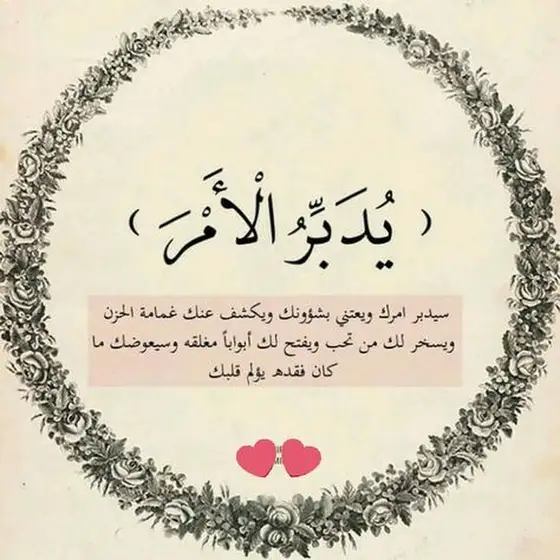 ( يُدَبِّرُ الْأَمْرَ )
سيدبر امرك ويعتني بشؤونك ويكشف عنك غمامة الحزن
ويسخر لك من تحب ويفتح لك أبواباً مغلقه وسيعوضك ما
كان فقده يؤلم قلبك